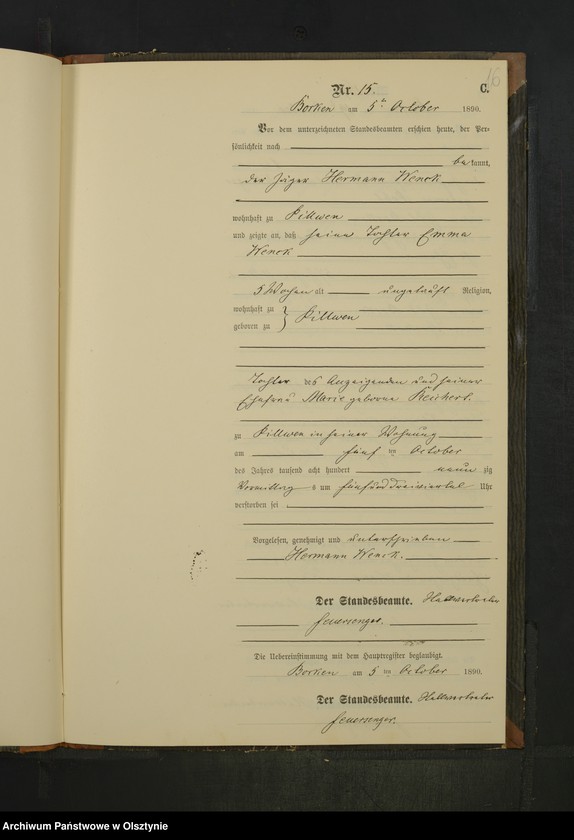 16
Nr. 15.
C.
Borken am 5ten October 1890.
Vor dem unterzeichneten Standesbeamten erschien heute, der Per-
sönlichkeit nach
bekannt,
der Jäger Hermann Wenck
wohnhaft zu Pillwen
und zeigte an, daß seine Tochter Emma
Wenck
5 Wochen alt ungetauft Religion,
wohnhaft zu
geboren zu } Pillwen
Tochter des Anzeigenden und seiner
Ehefrau Marie geborne Reichert.
zu Pillwen in seiner Wohnung
am fünften October
des Jahres tausend acht hundert neunzig
Vormittags um fünf und dreiviertel Uhr
verstorben sei
Vorgelesen, genehmigt und unterschrieben
Hermann Wenck.
Der Standesbeamte.
Feuersenger.
Die Uebereinstimmung mit dem Hauptregister beglaubigt.
Borken am 5ten October 1890.
Der Standesbeamte.
Feuersenger.
Archiwum Państwowe w Olsztynie